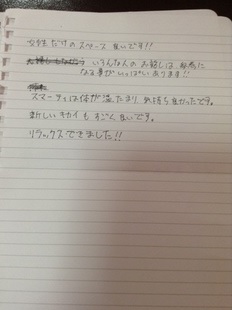 女性だけのスペース 良いです!!
いろんな人のお話しは、勉強に
なる事がいっぱいあります!!
スマーティは体が温たまり、気持ち良かったです。
新しいキカイもすごく良いです。
リラックスできました!!